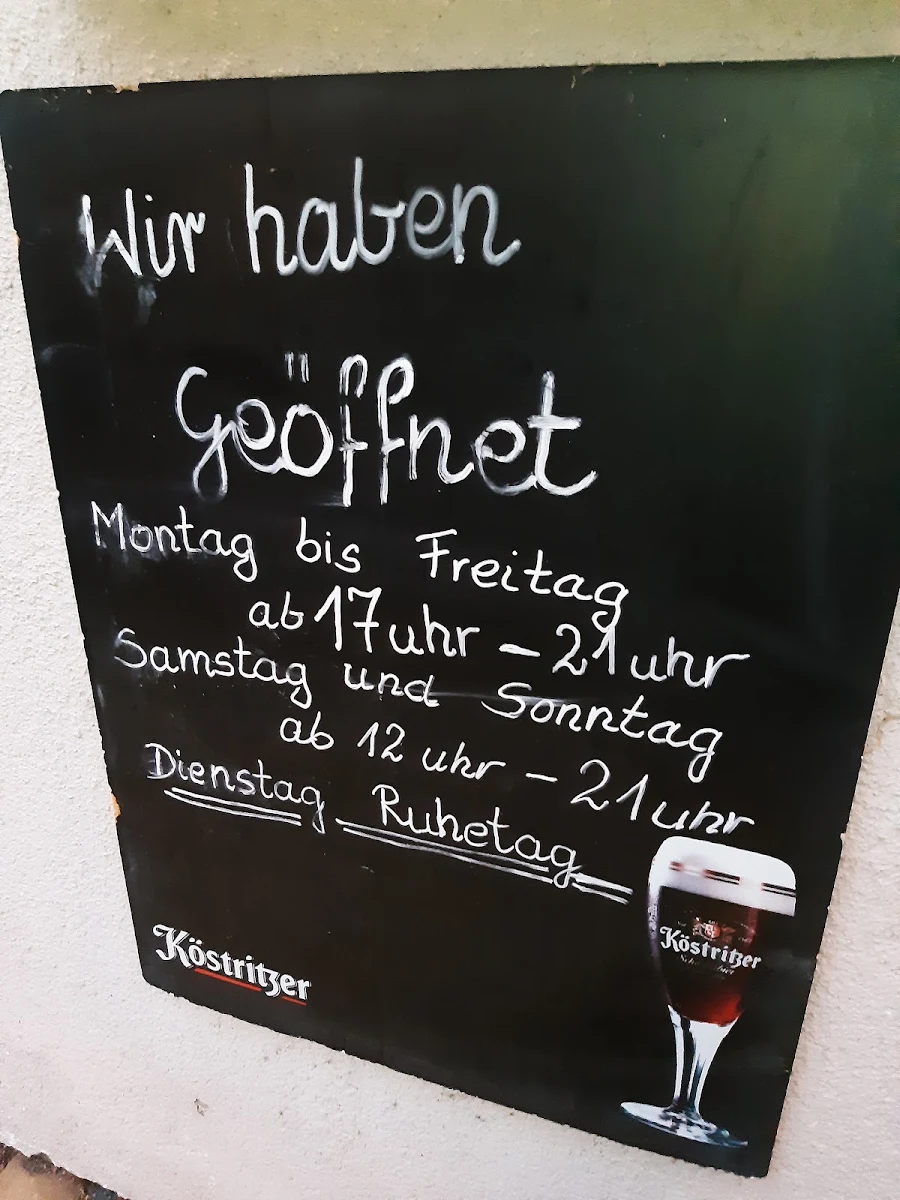 Wir haben
geöffnet
Montag bis Freitag
ab 17 uhr - 21 uhr
Samstag und Sonntag
ab 12 uhr - 21 uhr
Dienstag Ruhetag
Köstritzer
Köstritzer